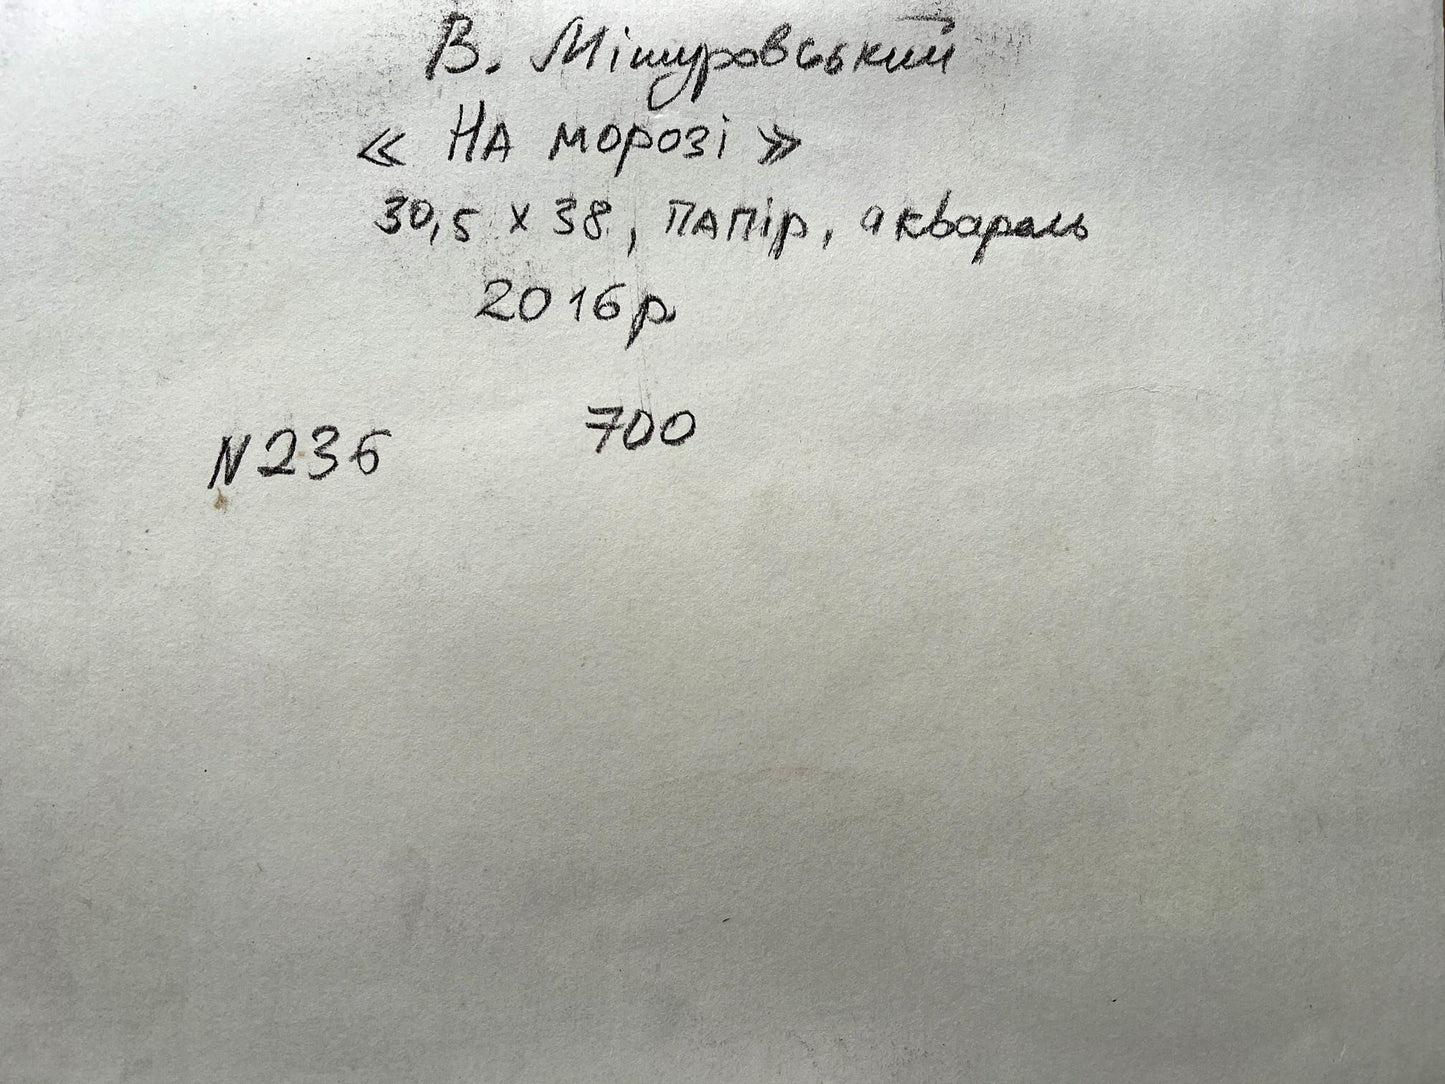 В. Мішуровський
« НА морозі »
30,5 x 38, ПАПір, акварель
2016р
N236
700